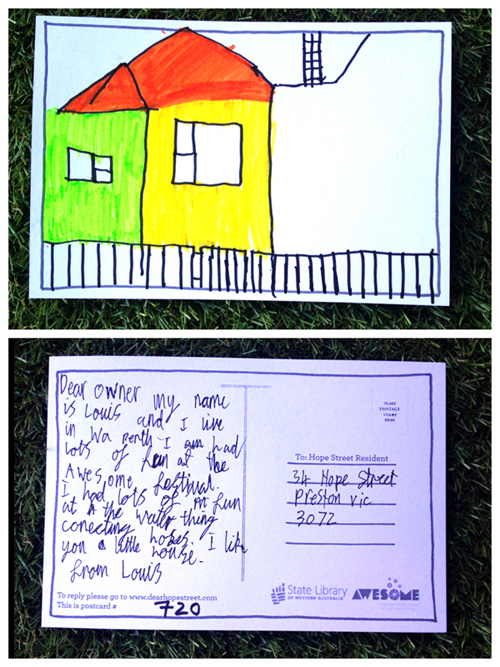 Dear owner my name
is Louis and I live
in Wa Perth I am had
lots of fun at the
Awesome festival.
I had lots of fun
at the water thing
conecting hoses. I like
you little house.
from Louis
To reply please go to www.dearhopestreet.com
This is postcard # 720
PLACE
POSTAGE
STAMP
HERE
To: Hope Street Resident
34 Hope Street
Preston Vic
3072
State Library
OF WESTERN AUSTRALIA
AWESOME